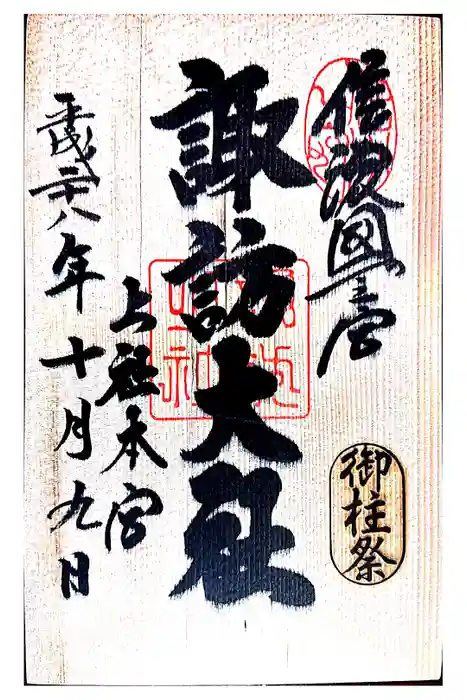 信濃國一之宮
御柱祭
諏訪大社
上社本宮
平成二十八年十月九日